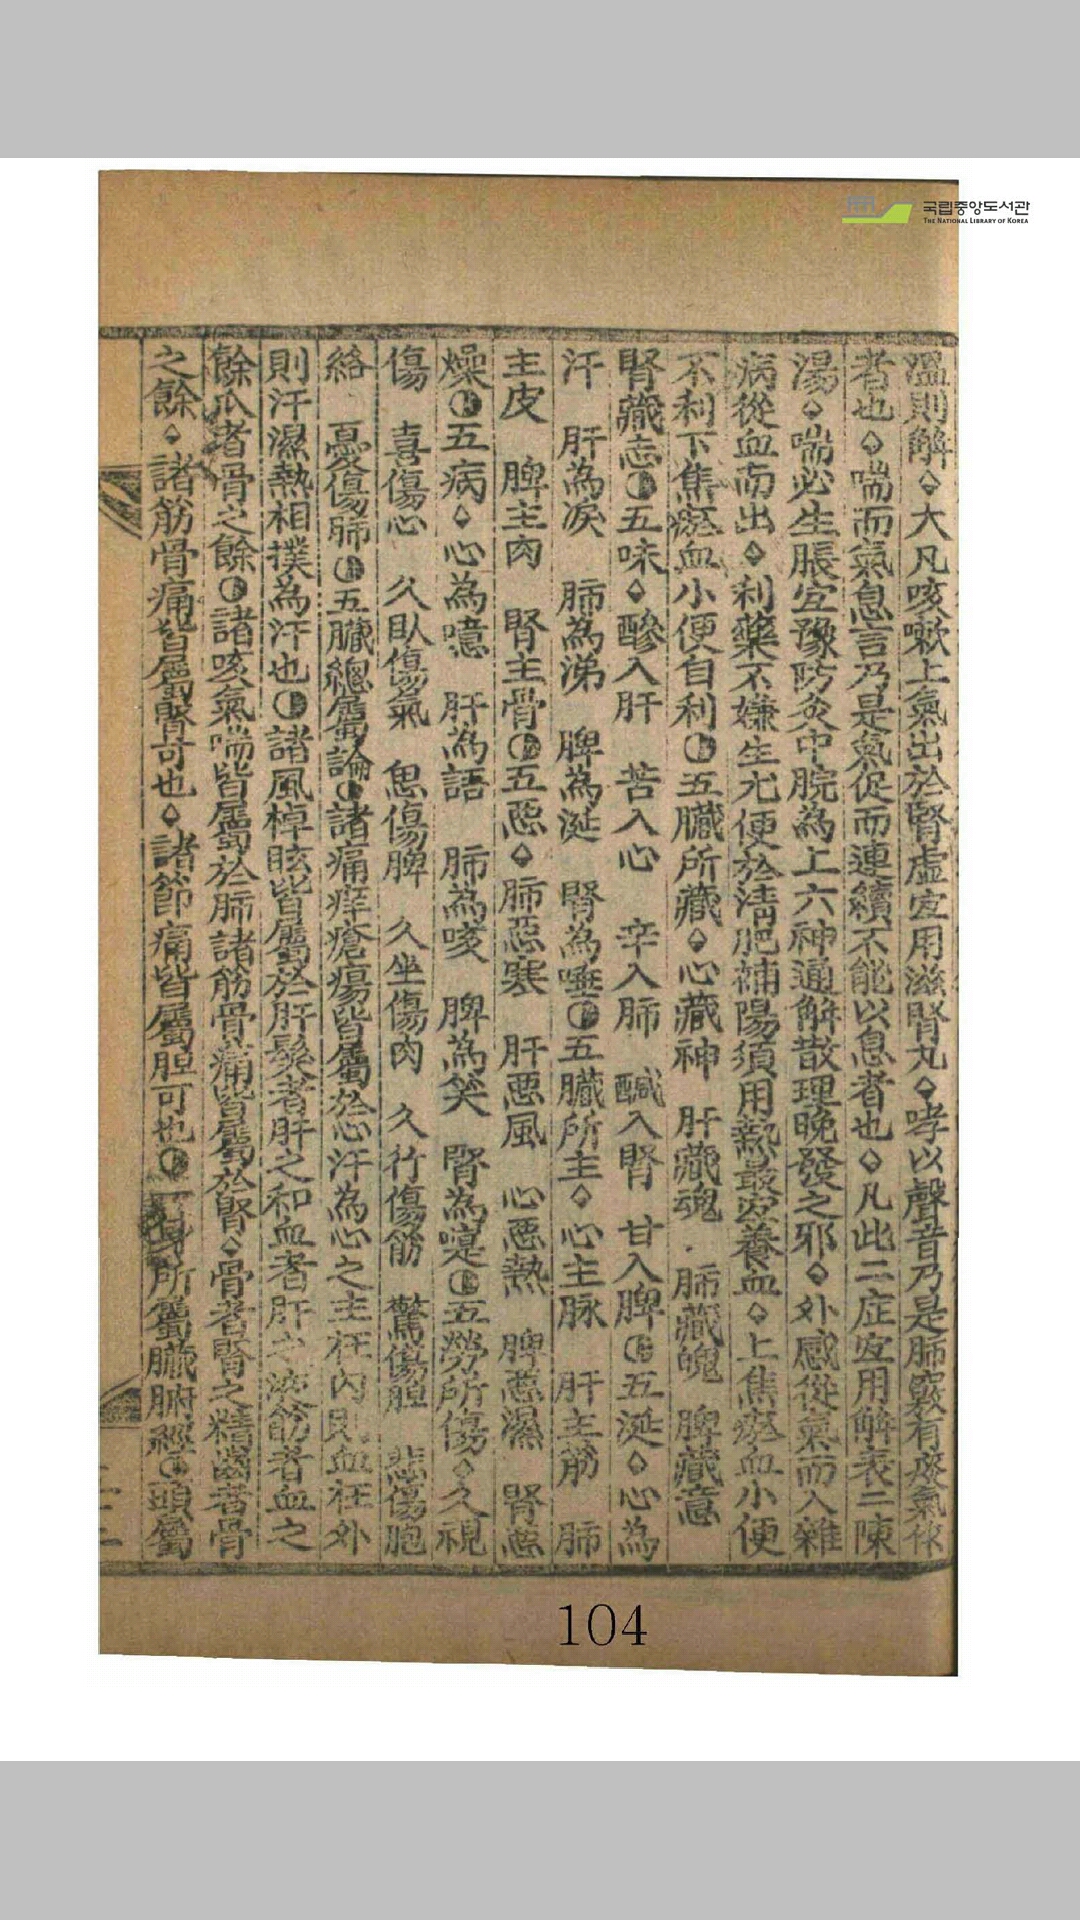 溫則解◇大凡咳嗽上氣出於腎虛宜用滋腎丸◇哮以聲音乃是肺竅有痰氣
者也◇喘而氣息言乃是氣促而連續不能以息者也◇凡此二症宜用解表二陳
湯◇喘必生脹宜豫防灸中脘為上六神通解散理晚發之邪◇外感從氣而入雜
病從血而出◇利藥不嫌生尤便於淸肥補陽須用熱最宜養血◇上焦瘀血小便
不利下焦瘀血小便自利 五臟所藏◇心藏神 肝藏魂 肺藏魄 脾藏意
腎藏志 五味◇酸入肝 苦入心 辛入肺 醎入腎 甘入脾 五涎◇心為
汗 肝為淚 肺為涕 脾為涎 腎為唾 五臟所主◇心主脉 肝主筋 肺
主皮 脾主肉 腎主骨 五惡◇肺惡寒 肝惡風 心惡熱 脾惡濕 腎惡
燥 五病◇心為噫 肝為語 肺為咳 脾為笑 腎為 五勞所傷◇久視
傷 喜傷心 久臥傷氣 思傷脾 久坐傷肉 久行傷筋 驚傷胆 悲傷胞
絡 憂傷肺 五臟總屬論 諸痛痒瘡瘍皆屬於心汗為心之主在內則血在外
則汗濕熱相撲為汗也 諸風掉眩皆屬於肝髮者肝之和血者肝之液筋者血之
餘爪者骨之餘 諸咳氣喘皆屬於肺諸筋骨痛皆屬於腎◇骨者腎之精齒者骨
之餘◇諸筋骨痛皆屬腎可也◇諸節痛皆屬胆可也 一身所屬臟腑經 頭屬
104
국립중앙도서관
THE NATIONAL LIBRARY OF KOREA